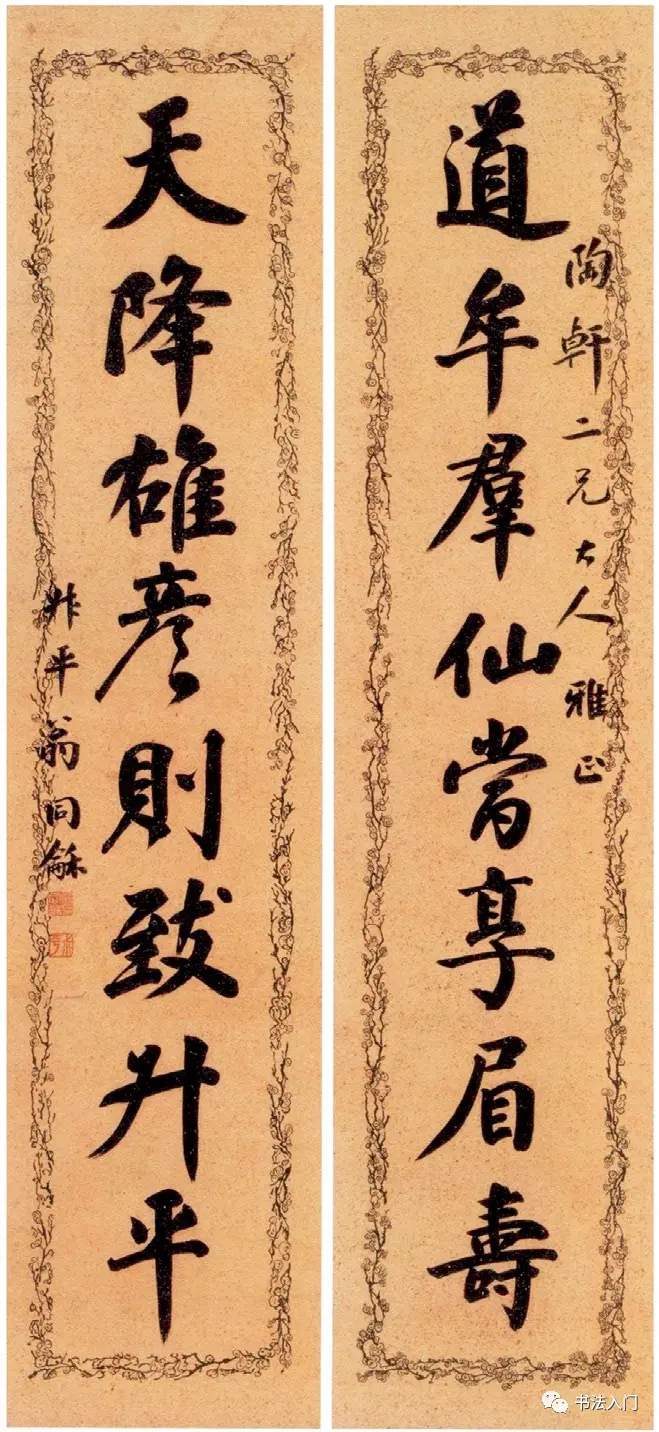 陶軒二兄大人雅正
道牟羣仙常享眉壽
天降雄彥則致升平
叔平翁同龢
书法入门